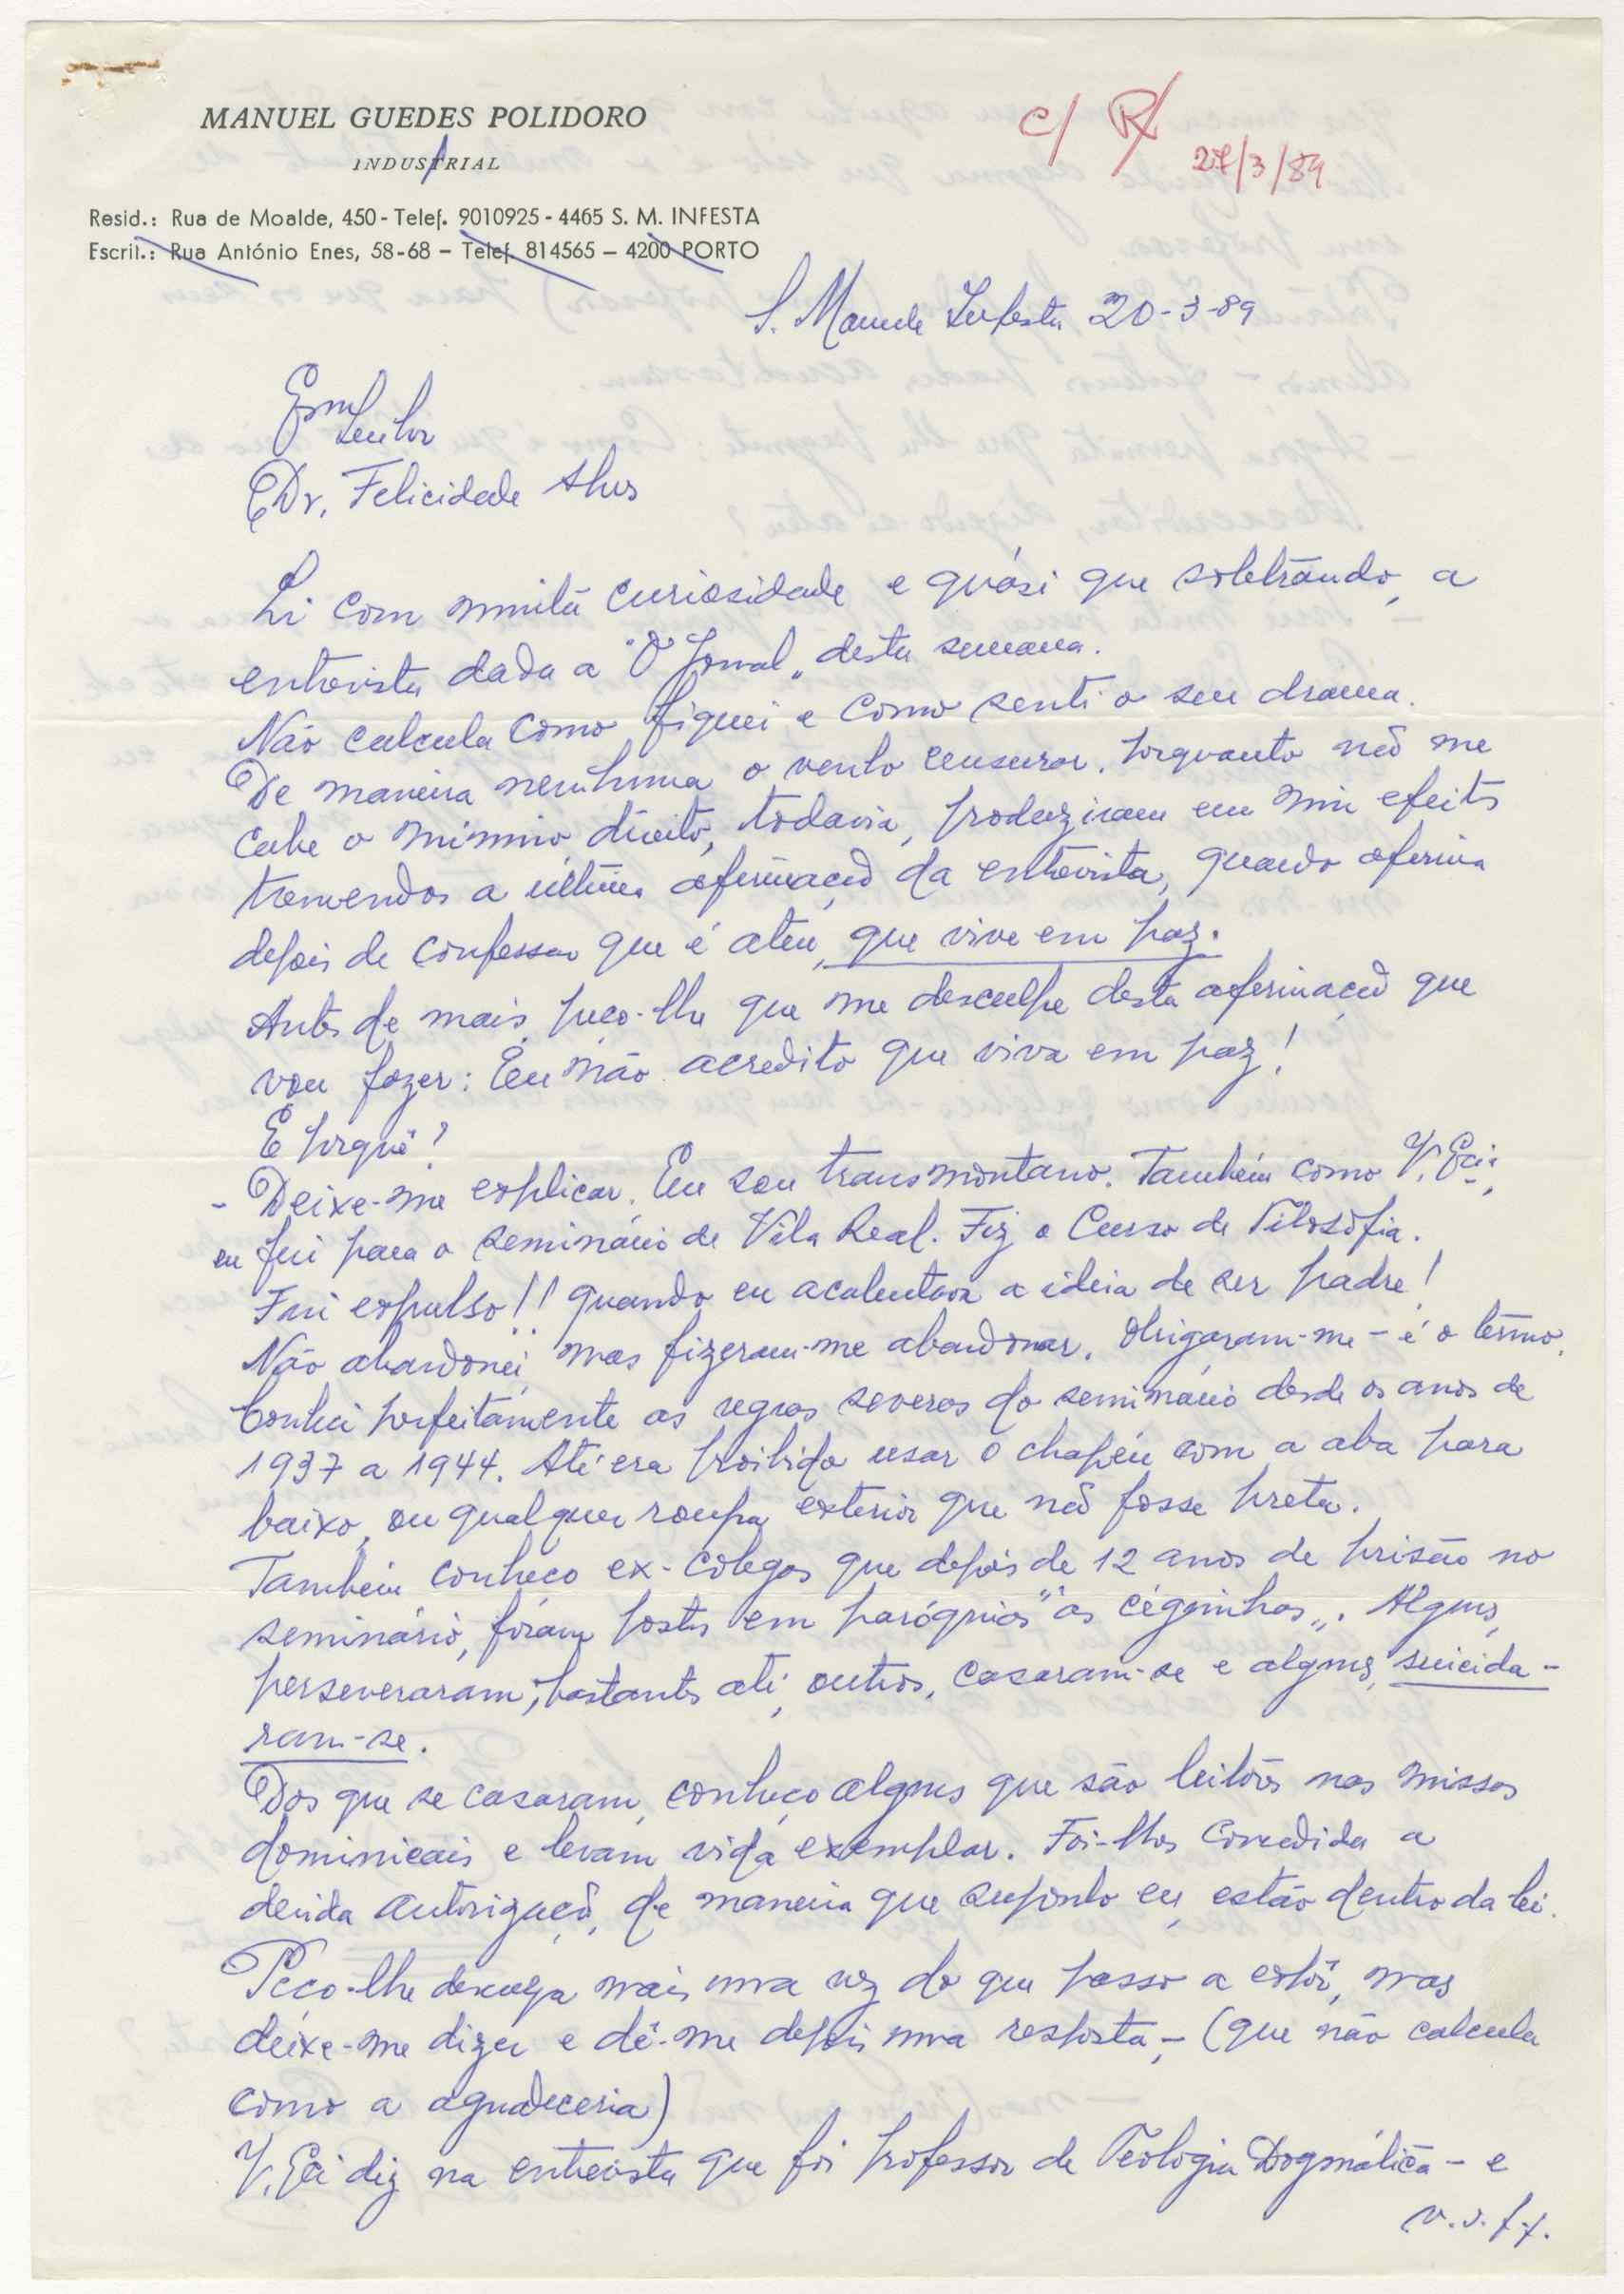 MANUEL GUEDES POLIDORO
INDUSTRIAL
Resid.: Rua de Moalde, 450 - Telef. 9010925 - 4465 S. M. INFESTA
Escrit.: Rua António Enes, 58-68 – Telef. 814565 – 4200 PORTO
c/ R/
27/3/89
S. Mamede Infesta 20-3-89
Exmº
Senhor
Dr. Felicidade Alves
Li com muita curiosidade e quási que soletrando, a
entrevista dada a "O Jornal" desta semana.
Não calcula como fiquei e como senti o seu drama.
De maneira nenhuma o venho censurar, porquanto não me
cabe o mínimo direito, todavia, produziram em mim efeitos
tremendos a última afirmação da entrevista, quando afirma
depois de confessar que é ateu, que vive em paz.
Antes de mais, peço-lhe que me desculpe desta afirmação que
vou fazer: Eu não acredito que viva em paz!
E porquê?
- Deixe-me explicar. Eu sou transmontano. Também como V. Exª,
eu fui para o seminário de Vila Real. Fiz o Curso de Filosofia.
Fui expulso!! quando eu acalentava a ideia de ser padre!
Não abandonei, mas fizeram-me abandonar. Obrigaram-me - é o termo.
Conheci perfeitamente as regras severas do seminário desde os anos de
1937 a 1944. Até era proibido usar o chapéu com a aba para
baixo, ou qualquer roupa exterior que não fosse preta.
Também conheço ex-colegas que depois de 12 anos de prisão no
seminário, foram postos em paróquias "às ceguinhas". Alguns,
perseveraram, bastantes até, outros, casaram-se e alguns, suicida-
ram-se.
Dos que se casaram, conheço alguns que são leitores nas missas
dominicais e levam vida exemplar. Foi-lhes concedida a
devida autorização, de maneira que suponho eu, estão dentro da lei.
Peço-lhe desculpa mais uma vez do que passo a expôr, mas
deixe-me dizer e dê-me depois uma resposta, - (que não calcula
como a agradeceria)
V. Exª diz na entrevista que foi professor de Teologia Dogmática - e
v.s.f.f.